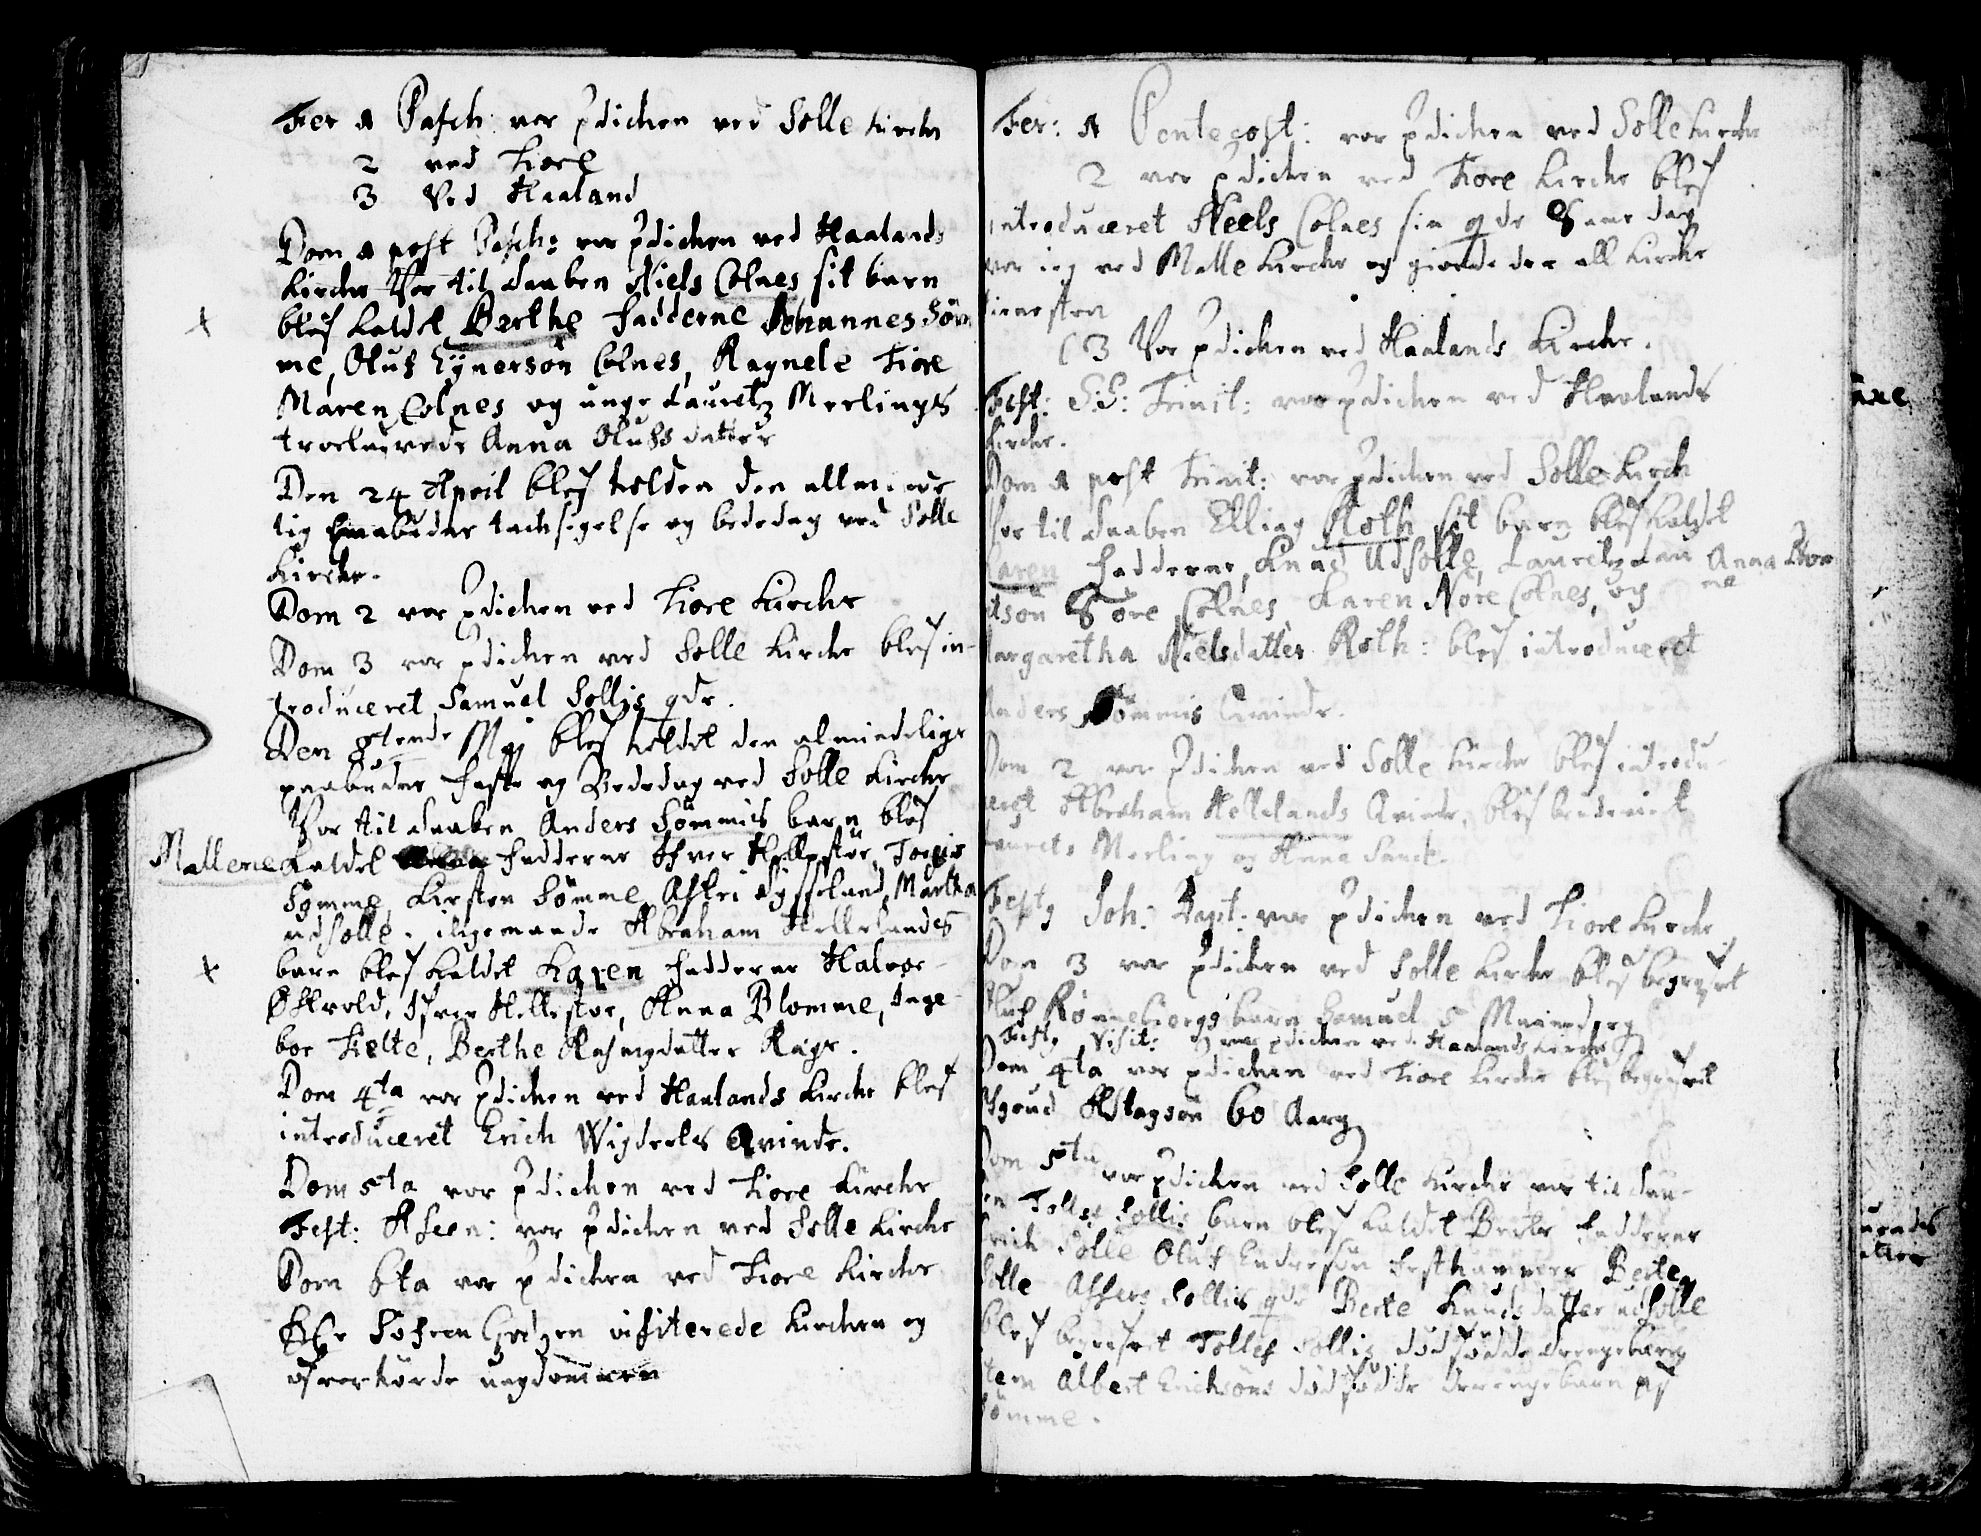 Fer 1 Pasch: var pdichen ved Solle Kirche
2 ved Tiore
3 Ved Haaland
Dom 1 post Pasch: var pdichen ved Haalands
Kirche Var til daaben Niels Colnes sit barn
blef kaldet Berthe Fadderne Johannes Söm
me, Oluf Eÿnersön Colnes, Ragnele Tiore
Maren Colnes og unge Lauretz Meelings
troelovede Anna Olufsdatter
Den 24 April blef holden den
tig paabudne tachsigelse og bededag ved Solle
Kirche.
Dom 2 var pdichen ved Tiore Kirche
Dom 3 var pdichen ved Solle Kirche blef in-
troduceret Samuel Sollis qde.
Den 8tende Maj blef holdet den almindelige
paabudne Faste og Bededag ved Solle Kirche
Var til daaben Anders Sömmis barn blef
Mallene kaldet Fadderne Ifver Hellestöe, Torgis
Sömme, Kirsten Sömme, Astri Sysseland, Martha
udsolle. iligemaade Abraham Hellelandes
barn blef kaldet Karen Fadderne Halvor
Østvold, Ifver Hellestøe, Anna Blomme, Inge-
bor Tielte, Berthe Rasmusdatter Rege.
Dom 4ta var pdichen ved Haalands Kirche blef
introduceret Erich Wigdeels Qvinde.
Dom 5ta var pdichen ved Tiore Kirche
Fest: Ascen: var pdichen ved Solle Kirche
Dom 6ta var pdichen ved Tiore Kirche
Hr Sofren Godzen visiterede Kirchen og
ofverhörde ungdommen
Fer: 1 Pentecost: var pdichen ved Solle Kirche
2 var pdichen ved Tiore Kirche blef
introduceret Neels Colnes sin qde Same dag
var ieg ved Malle Kirche og giorde der all Kirche
tienesten
3 Var pdichen ved Haalands Kirche.
Fest: S.S: Trinit: var pdichen ved Haalands
Kirche.
Dom 1 post Trinit: var pdichen ved Solle Kirch
Var til daaben Elling Roth sit barn blef kaldet
Karen Fadderne, Knud Udsolle, Lauritz Anna
sön Sore Colnes, Karen Nore Colnes, og
Margaretha Nielsdatter Roth: blef introduceret
Anders Sömmis Qvinde.
Dom 2 var pdichen ved Solle Kirche blef introdu-
ceret Abraham Hellelands Qvinde, blef brudeviet
Laurets Meeling og Anna Sanck.
Festg Joh: Bapt: var pdichen ved Tiore Kirche
Dom 3 var pdichen ved Solle Kirche blef begrafvet
Oluf Rönnebiergs barn Samuel 5
Festg Visit: var pdichen ved Haalands Kirche
Dom 4ta var pdichen ved Tiore Kirche blef begrafvet
Aslagsön 60 Aarg
Dom 5ta var pdichen ved Solle Kirche var til daa-
ben Tollef Sollis barn blef kaldet Berte Fadderne
Erich Solle Oluf Endresön Berte
Solle Sollis qde Berte Knudsdatter udsolle
blef begrafvet Tollef Sollis dödfödde drengebarn
item Albert Ericksöns dödfödde drengebarn af
Sömme.